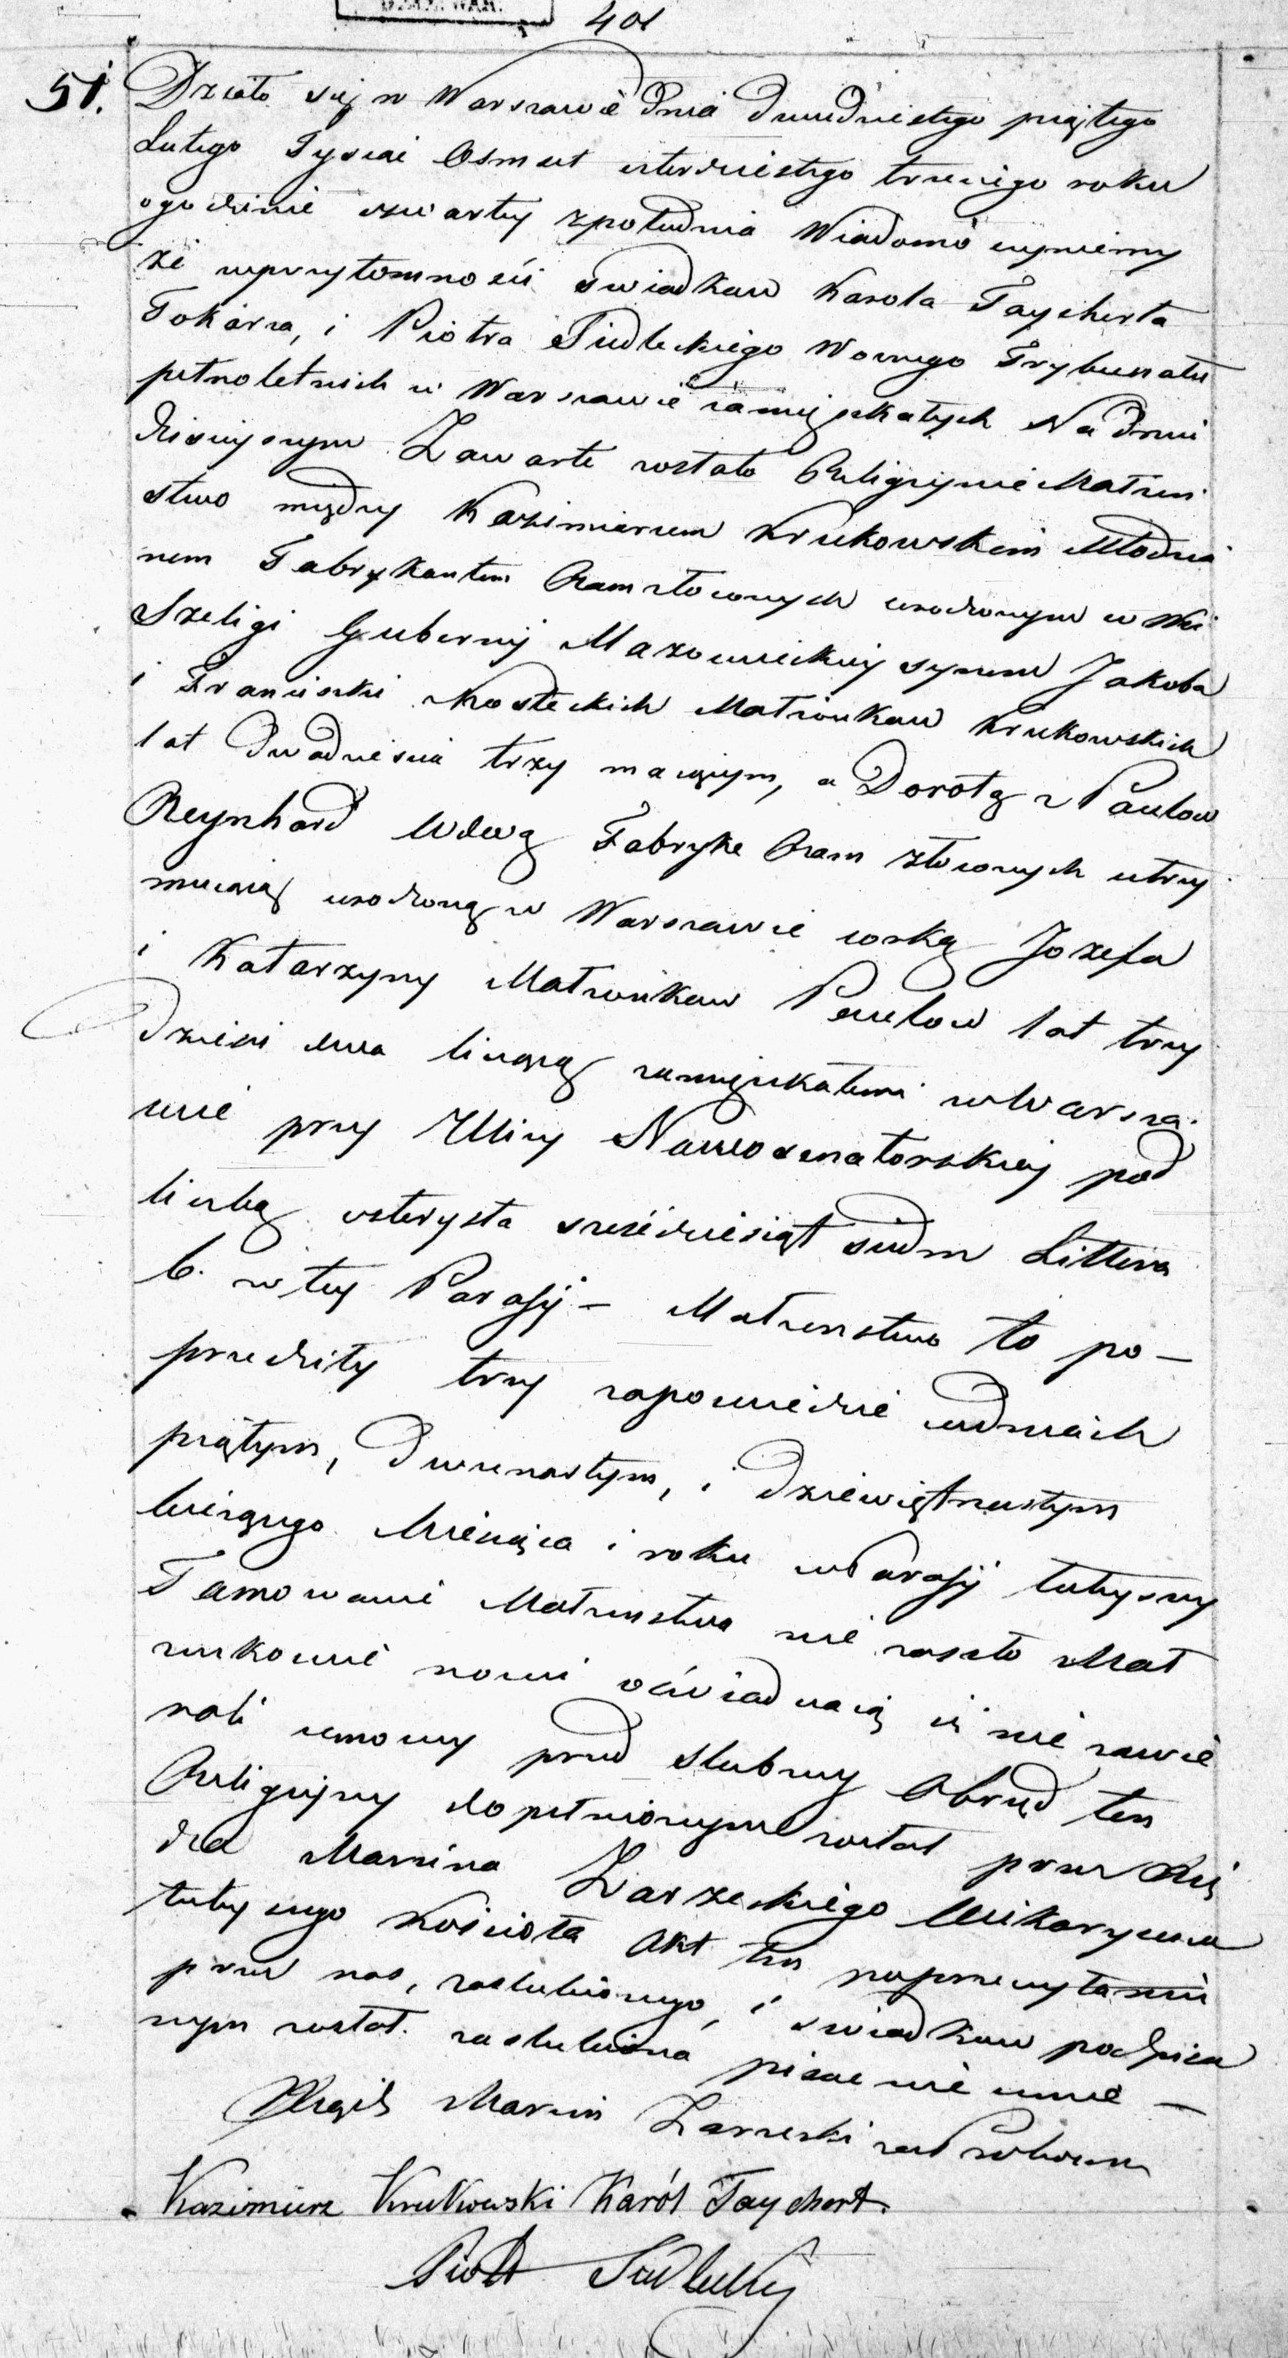 401
51. Działo się w Warszawie Dnia Dwudziestego piątego
Lutego Tysiąc Osmset czterdziestego trzeciego roku
o godzinie czwarty z południa Wiadomo czyniemy
że w przytomności swiadkow Karola Taycherta
Tokarza, i Piotra Siedleckiego Woznego Trybunału
pełnoletnich w Warszawie zamięszkałych Na Dniu
dzisiejszym Zawarte zostało Religijnie Małżeń
stwo między Kazimierzem Krukowskim Młodzia
nem Fabrykantem Ram złoconych urodzonym we Wsi
Szeligi Gubernij Mazowieckiej synem Jakoba
i Franciszki Małżonkow Krukowskich
lat Dwadzieścia trzy maiącym, a Dorotą z Paulow
Reynhard Wdową Fabrykę Ram złoconych utrzy
muiącą urodzoną w Warszawie corką Jozefa
i Katarzyny Małżonkow Paulow lat trzy
dzieści dwa liczącą zamięszkałemi w Warsza-
wie przy Ulicy Nowosenatorskiej pod
liczbą czterysta sześćdziesiąt siedm Littera
b. w tej Parafij – Małżenstwo to po–
przedziły trzy zapowiedzie w dniach
piątym, Dwunastym, i Dziewiętnastym
bieżącego Miesiąca i roku w Parafij tutejszej
Tamowanie Małżenstwa nie zaszło Mał
żonkowie nowi oświadczaią iż nie zawie
rali umowy przed slubney Obrzęd ten
Religijny dopełnionym został przez Xię
dza Marcina Zarzeckiego Wikaryusza
tutejszego Kościoła Akt ten po przeczytaniu
przez nas, zaslubionego, i swiadkow podpisa
nym został. zaslubiona pisać nie umie –
Xiądz Marcin Zarzecki
Kazimierz Krukowski Karól Taychert.
Piotr Siedlecky